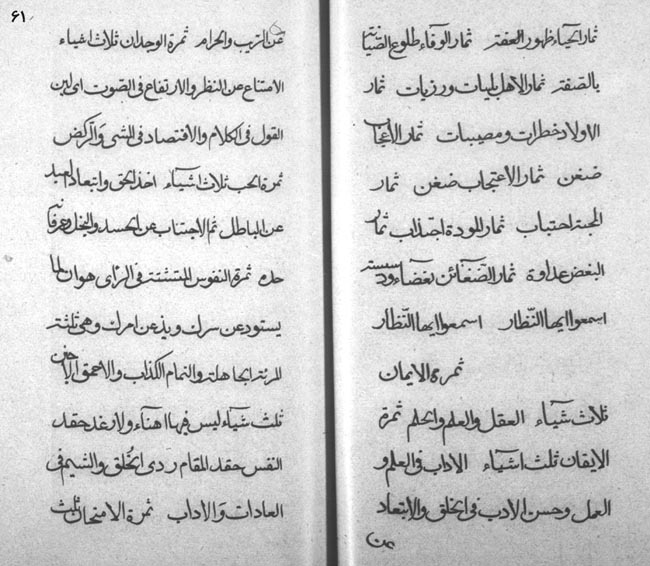 ثمار الحياء ظهور العفة ثمار الوفاء طلوع الصيانة
بالصفة ثمار الاهل بليات ورزيات ثمار
الاولاد خطرات ومصيبات ثمار الأعجاب
ضغن ثمار الاعتجاب ضغن ثمار
المحبة احتباب ثمار المودة اجتذاب ثمار
البغض عداوة ثمار الضغائن بغضاء
اسمعوا ايها النظار اسمعوا ايها النظار
ثمرة الايمان
ثلاث شياء العقل والعلم والحلم ثمرة
الايقان ثلث اشياء الاداب والعلم و
العمل وحسن الادب فى الخلق والابتعاد
عن
٦١
عن الريب والحرام ثمرة الوجدان ثلاث اشياء
الامتناع عن النظر والارتفاع فى الصوت اى لين
القول فى الكلام والاقتصاد فى المشى والركض
ثمرة الحب ثلاث اشياء اخذ الحق وابتعاد العبد
عن الباطل ثم الاجتناب عن الحسد والبخل وعرفانه
حده ثمرة النفوس المتشتتة فى الراى هوان لما
يستودعن سرك ويذعن امرك وهى ثلثة
المرئة الجاهلة والنمام الكذاب والاحمق
ثلث شياء ليس فيها اهناء ولا رغد حقد
النفس حقد المقام ردى الخلق والشيم فى
العادات والاداب ثمرة الامتحان ثلث